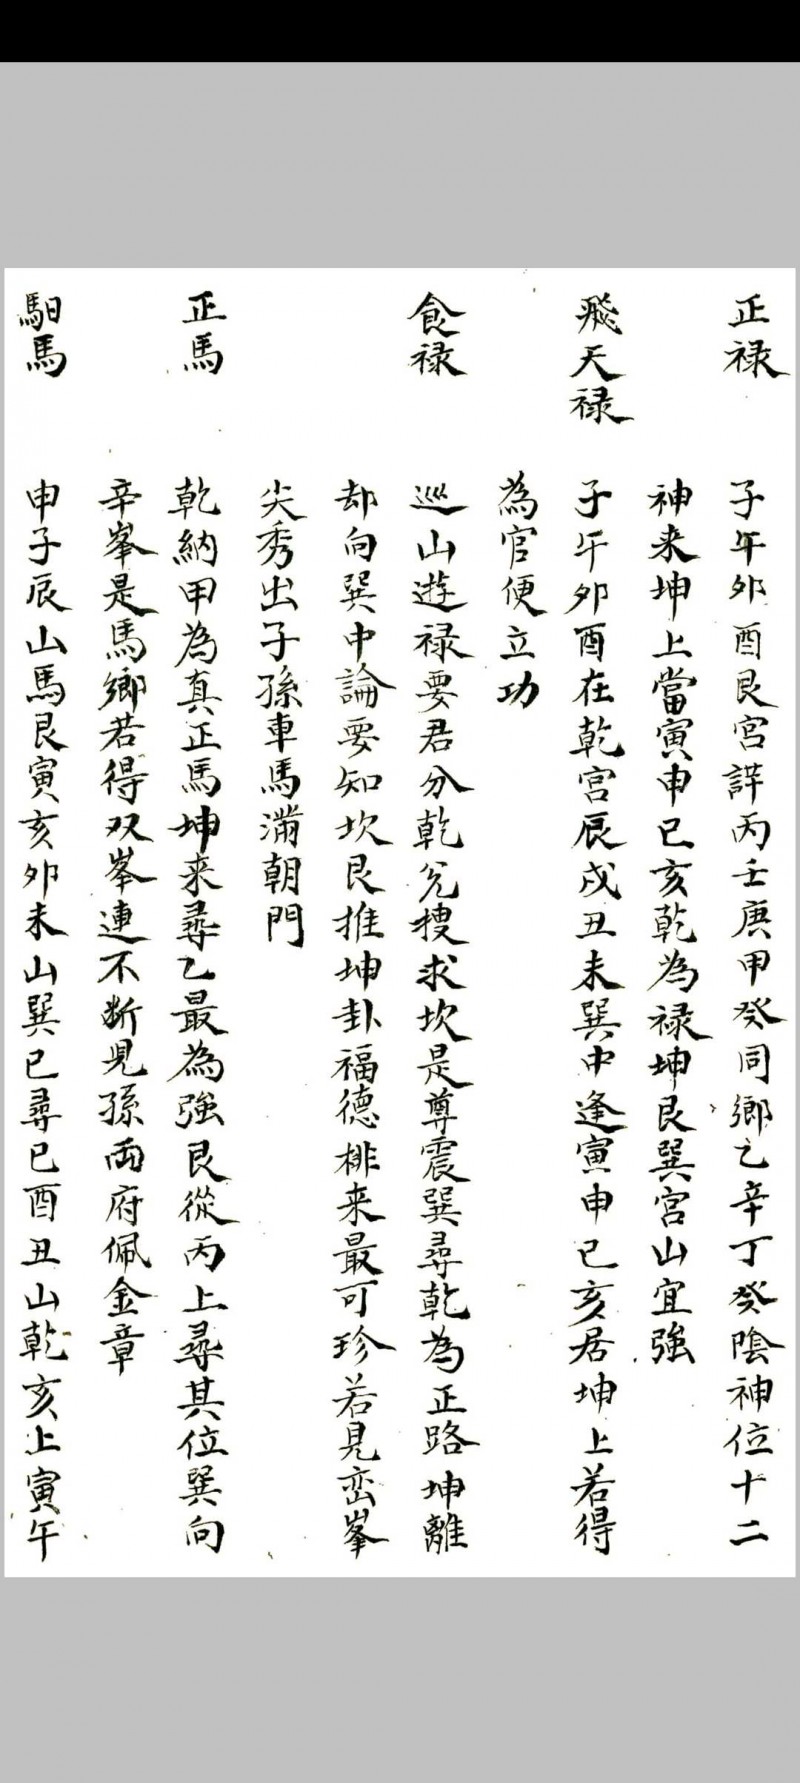 正禄　子午卯酉艮宮詳丙壬庚甲癸同鄉乙辛丁癸陰神位十二
神来坤上當寅申巳亥乾為禄坤艮巽宮山宜強
飛天禄　子午卯酉在乾宮辰戌丑未巽中逢寅申巳亥居坤上若得
為官便立功
食禄　巡山遊禄要君分乾兊搜求坎是尊震巽尋乾為正路坤離
却向巽中論要知坎艮推坤卦福德排来最可珍若見巒峯
尖秀出子孫車馬滿朝門
正馬　乾納甲為真正馬坤来尋乙最為強艮從丙上尋其位巽向
辛峯是馬鄉若得双峯連不断児孫両府佩金章
馹馬　申子辰山馬艮寅亥卯未山巽巳尋巳酉丑山乾亥上寅午